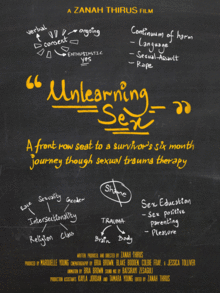 A ZANAH THIRUS FILM
verbal
ongoing
consent
ENTHUSIASTIC
yes
Continuum of harm
- Language
- Sexual-Assault
- Rape
"Unlearning
Sex"
A front row seat to a survivor's six month
journey though sexual trauma therapy
Shame
Race
Sexuality
Gender
Intersectionality
Religion
Class
TRAUMA
Brain
Body
Sex Education
- Sex positive
parenting
- Pleasure
WRITTEN PRODUCED AND DIRECTED BY ZANAH THIRUS
PRODUCED BY MARQUELLE YOUNG CINEMATOGRAPHY BY BRIA BROWN, BLAKE BOOKER, CHLOE FRAY & JESSICA TOLLIVER
ANIMATION BY BRIA BROWN
PRODUCTION ASSISTANCE KAYLA JORDAN AND TAMARA YOUNG EDITED BY ZANAH THIRUS